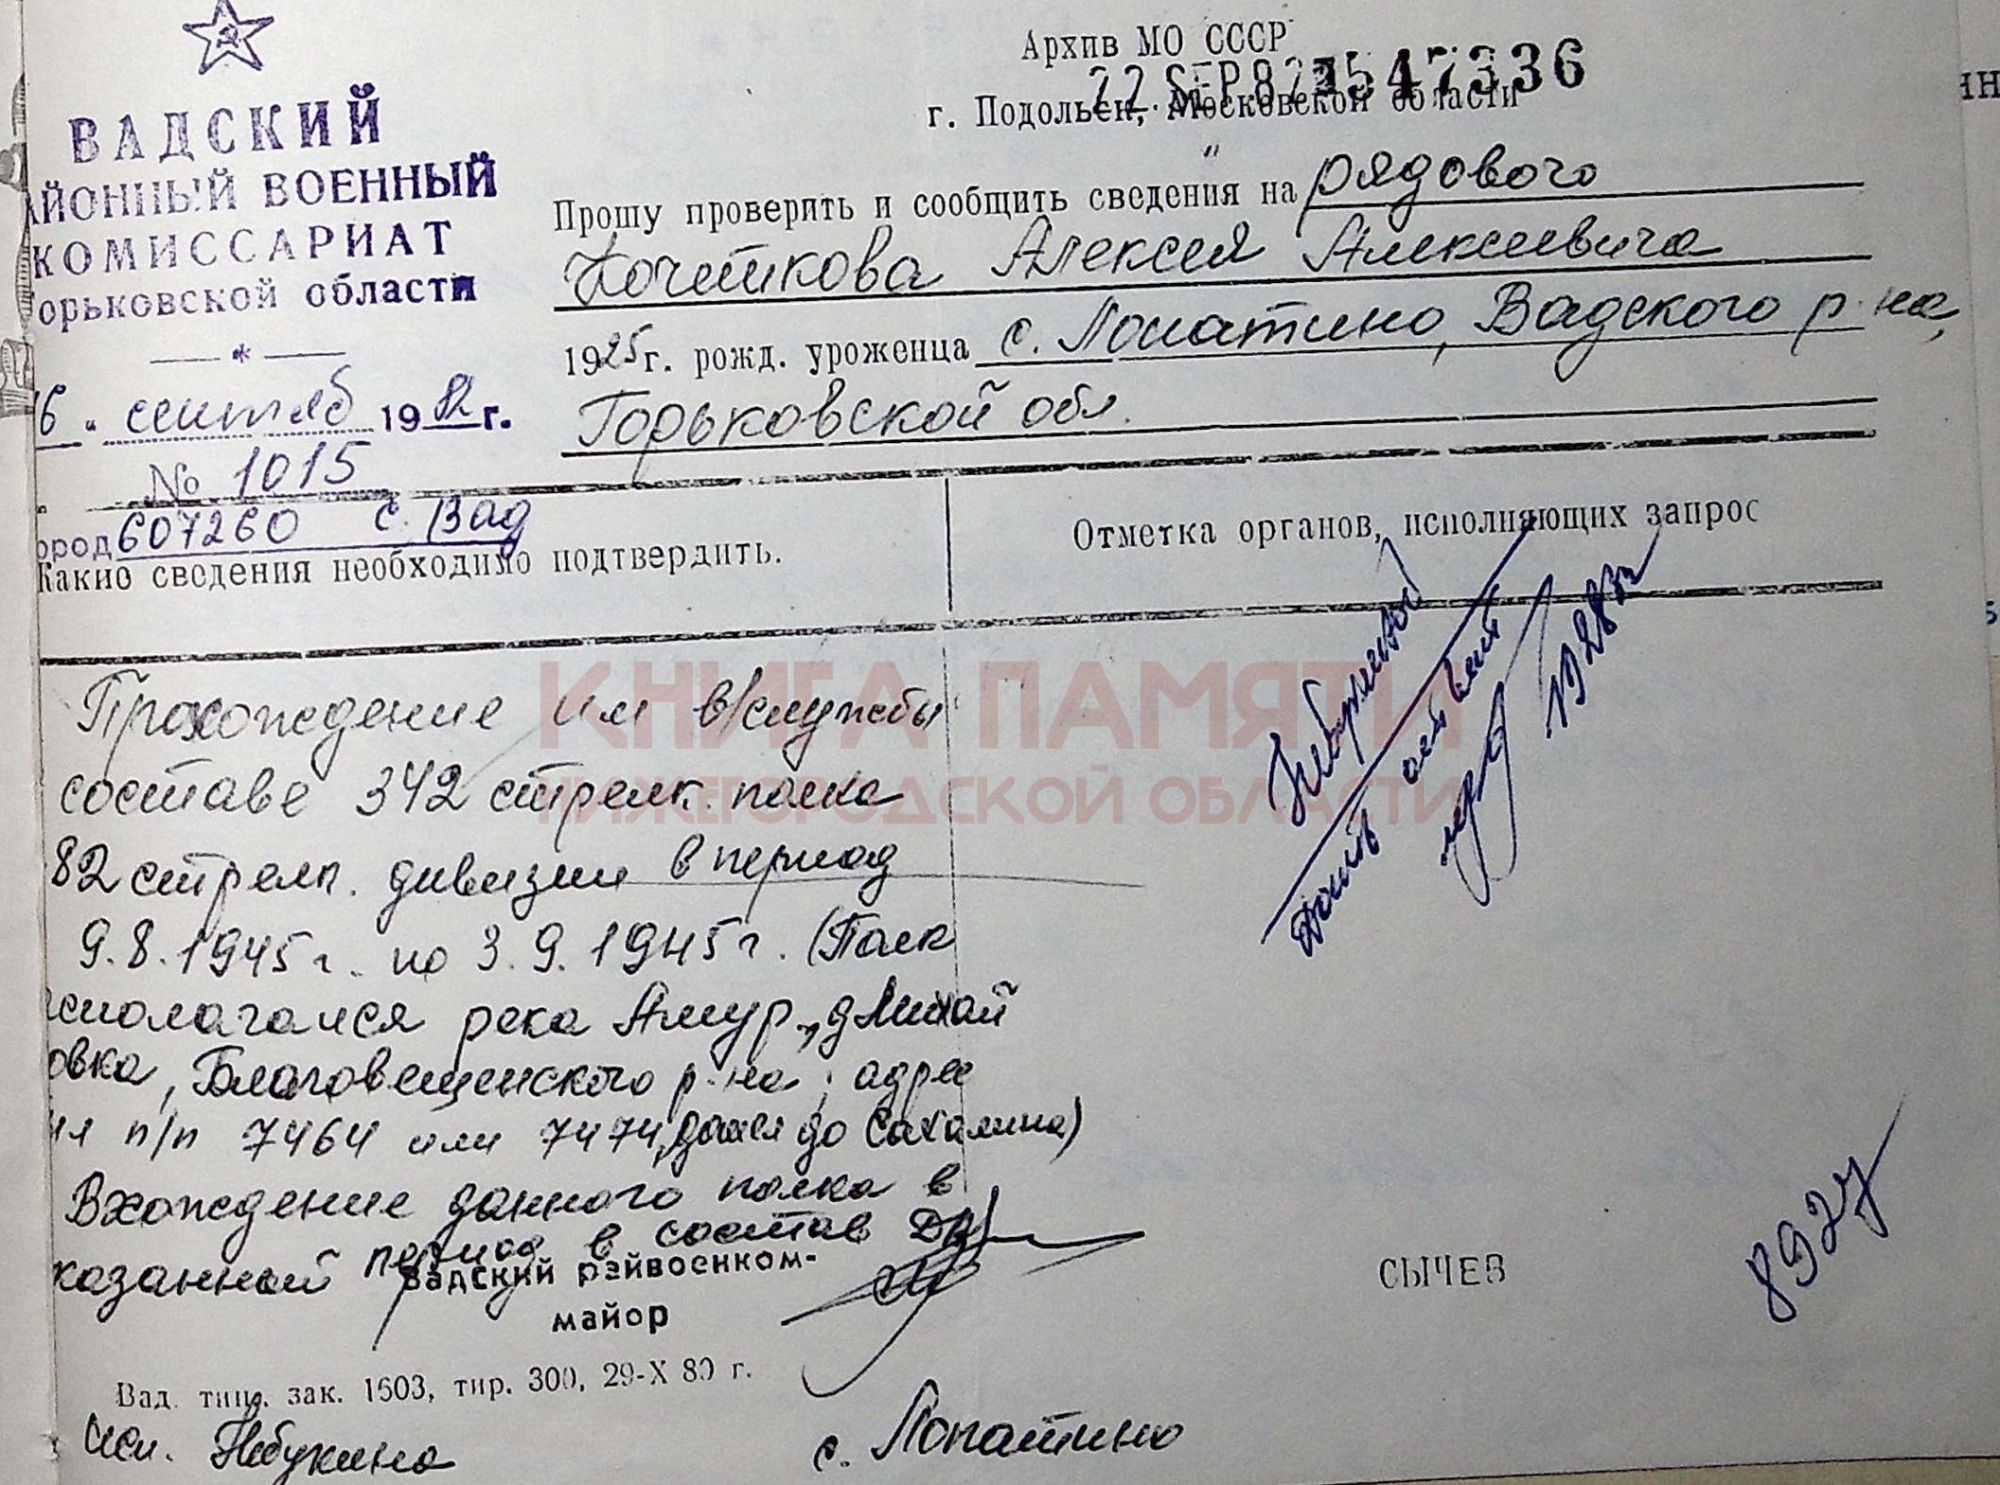 ВАДСКИЙ
АЙОННЫЙ ВОЕННЫЙ
КОМИССАРИАТ
орьковской области
6 " сентяб 1982 г.
№ 1015
ород 607260 с. Вад
Архив МО СССР
22. SEP. 82 547336
г. Подольск, Московской области
Прошу проверить и сообщить сведения на рядового
Кочеткова Алексея Алексеевича
1925 г. рожд. уроженца с. Лопатино, Вадского р-на,
Горьковской обл.
Какие сведения необходимо подтвердить.
Отметка органов, исполняющих запрос
Прохождение им в/службы
составе 342 стрелк. полка
82 стрелк. дивизии в период
9.8.1945 г. по 3.9.1945 г. (Полк
сполагался река Амур, д Михай
овка, Благовещенского р-на; адрес
п/п 7464 или 7474, дошел до Сахалина)
Вхождение данного полка в
казанный период в состав ДА
Вадский райвоенком-
майор
СЫЧЕВ
892у
Вад. тип. зак. 1603, тир. 300, 29-X 80 г.
исп. Небукина
с. Лопатино
КНИГА ПАМЯТИ
НИЖЕГОРОДСКОЙ ОБЛАСТИ